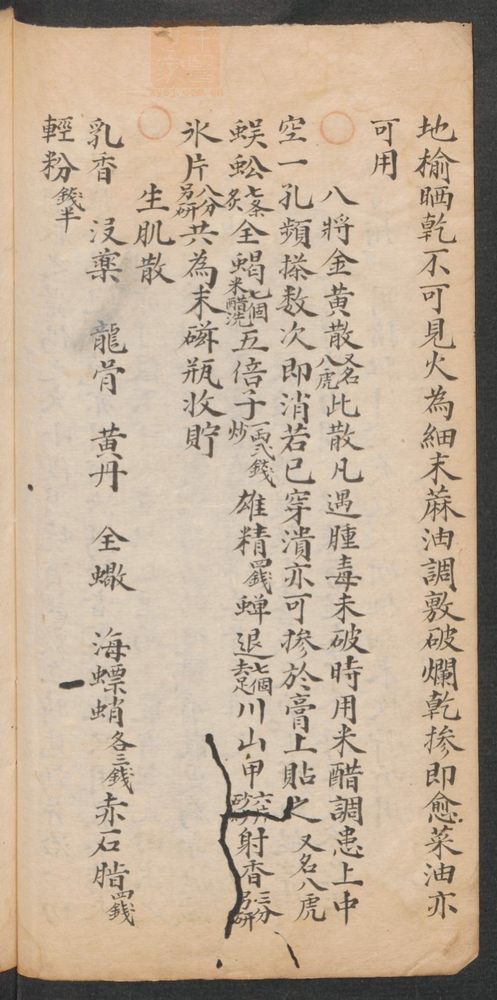 地榆晒乾不可見火為細末蔴油調敷破爛乾摻即愈菜油亦
可用
八將金黄散又名八虎此散凡遇腫毒未破時用米醋調患上中
空一孔頻搽数次即消若已穿潰亦可摻於膏上貼之又名八虎
蜈蚣七条炙全蝎七個米醋洗五倍子一両弍錢炒雄精四錢蝉退七個去足川山甲炒射香三分另研
氷片八分另研共為末磁瓶收貯
生肌散
乳香 沒藥 龍骨 黄丹 全蠍 海螵蛸各三錢赤石脂四錢
輕粉錢半